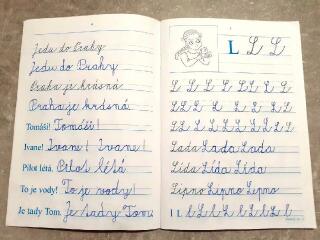 Jedu do Prahy
Jedu do Prahy
Praha je krásná
Praha je krásná
Tomáši! Tomáši!
Ivane! Ivane! Ivane!
Pilot létá. Pilot létá
To je vody! To je vody!
Je tady Tom. Je tady Tom
L L L
L L L L L L L L
L L L L L L L
L L L L L L L L L
Lada Lada Lada
Lída Lída Lída
Lipno Lipno Lipno
l L l L l L l L l L